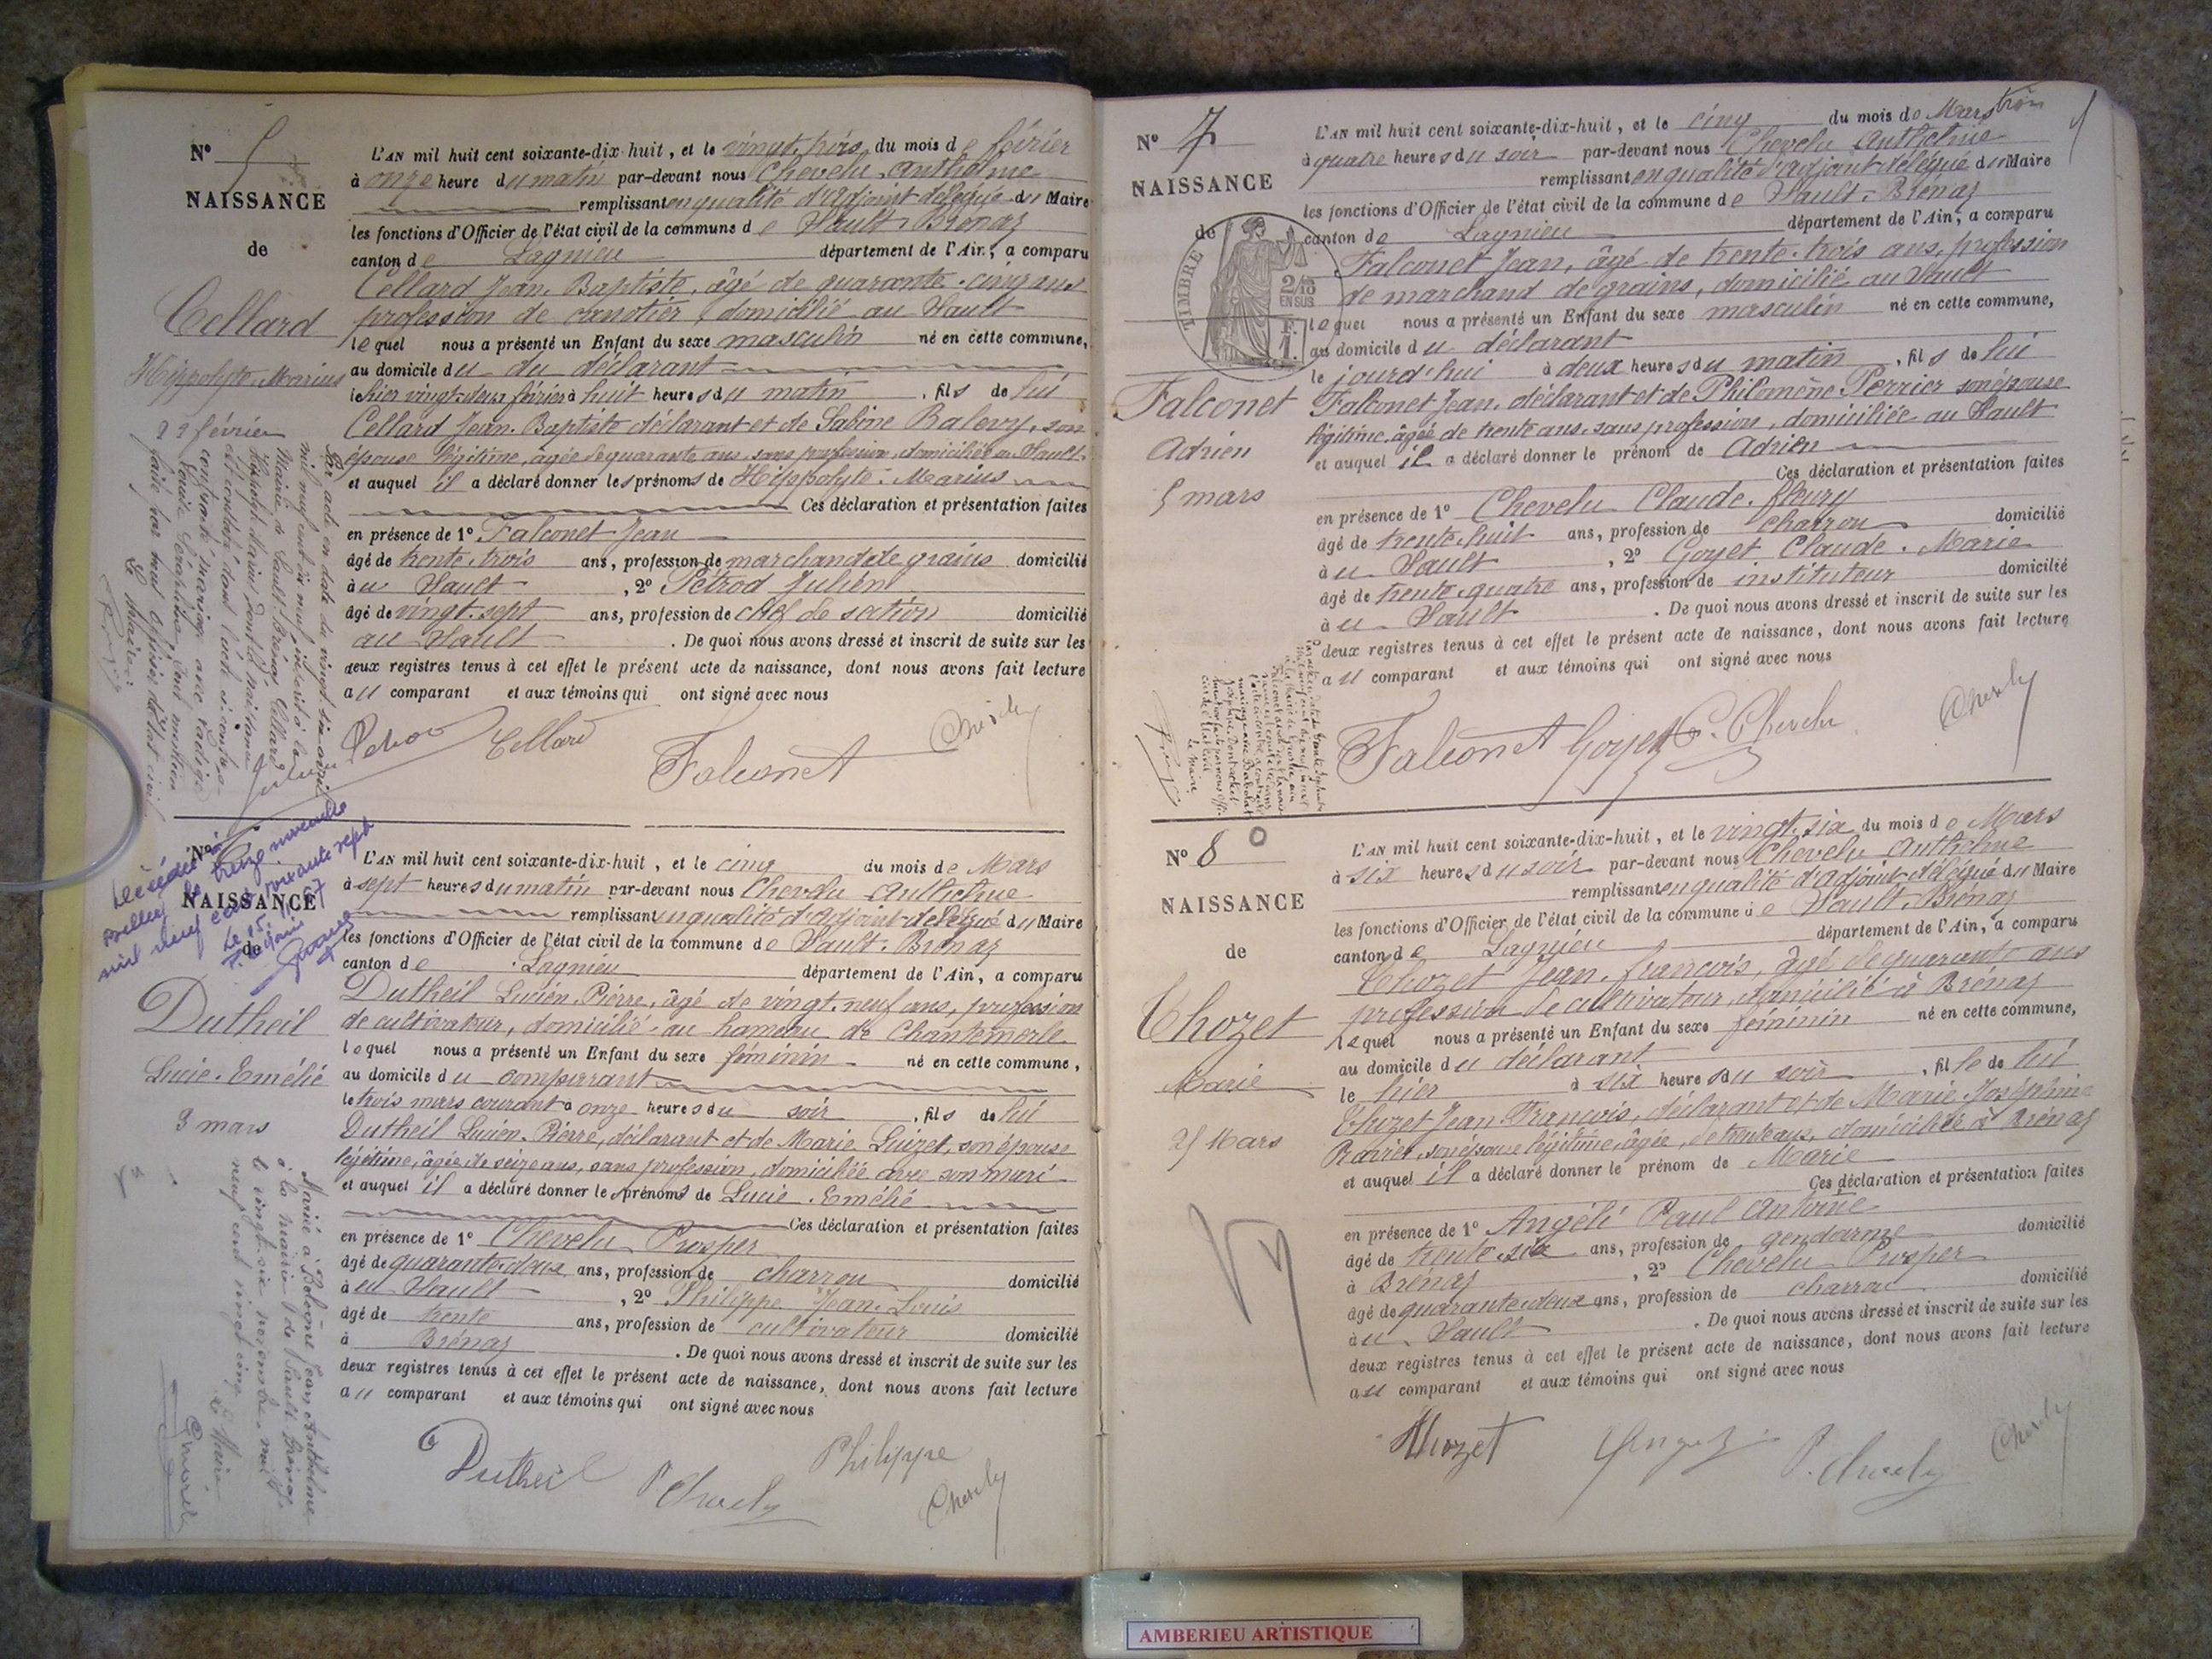 N° 5
NAISSANCE
de
Cellard
Hippolyte-Marius
22 février
L'AN mil huit cent soixante-dix-huit, et le vingt-trois du mois de février
à onze heure du matin par-devant nous Chevelu Anthelme
remplissant en qualité d'adjoint délégué du Maire
les fonctions d'Officier de l'état civil de la commune de Sault-Brénaz
canton de Lagnieu département de l'Ain, a comparu
Cellard Jean-Baptiste, âgé de quarante-cinq ans
profession de canotier, domicilié au Sault
lequel nous a présenté un Enfant du sexe masculin né en cette commune,
au domicile du du déclarant
le hier vingt-deux février à huit heures du matin, fils de lui
Cellard Jean-Baptiste déclarant et de Sabine Ralevy, son
épouse légitime, âgée de quarante ans, sans profession, domiciliée au Sault
et auquel il a déclaré donner les prénoms de Hippolyte-Marius
Ces déclaration et présentation faites
en présence de 1° Falconet Jean
âgé de trente-trois ans, profession de marchand de grains domicilié
à u Sault, 2° Pétrod Julien
âgé de vingt-sept ans, profession de chef de section domicilié
au Sault. De quoi nous avons dressé et inscrit de suite sur les
deux registres tenus à cet effet le présent acte de naissance, dont nous avons fait lecture
au comparant et aux témoins qui ont signé avec nous
Cellard
Falconet
Par acte en date du vingt six avril
mil neuf cent neuf, inscrit à la
Mairie de Sault-Brénaz, Cellard
Hippolyte Marius, dont la naissance
est constatée dans l'acte ci-contre a
contracté mariage avec
Mention
faite par nous Officier de l'état civil
Le Maire
N° 6
NAISSANCE
de
Dutheil
Lucie-Emélie
3 mars
Décédée à
Belley le treize novembre
mil neuf cent soixante sept
Le 15.11.67
L'AN mil huit cent soixante-dix-huit, et le cinq du mois de Mars
à sept heures du matin par-devant nous Chevelu Anthelme
remplissant en qualité d'adjoint délégué du Maire
les fonctions d'Officier de l'état civil de la commune de Sault-Brénaz
canton de Lagnieu département de l'Ain, a comparu
Dutheil Lucien-Pierre, âgé de vingt-neuf ans, profession
de cultivateur, domicilié au hameau de Chantemerle
lequel nous a présenté un Enfant du sexe féminin né en cette commune,
au domicile du comparrant
le trois mars courant à onze heures du soir, fils de lui
Dutheil Lucien-Pierre, déclarant et de Marie Guizet, son épouse
légitime, âgée de seize ans, sans profession, domiciliée avec son mari
et auquel il a déclaré donner les prénoms de Lucie-Emélie
Ces déclaration et présentation faites
en présence de 1° Chevelu Prosper
âgé de quarante-deux ans, profession de charron domicilié
à u Sault, 2° Philippe Jean-Louis
âgé de trente ans, profession de cultivateur domicilié
à Brénaz. De quoi nous avons dressé et inscrit de suite sur les
deux registres tenus à cet effet le présent acte de naissance, dont nous avons fait lecture
au comparant et aux témoins qui ont signé avec nous
Dutheil P. Chevelu Philippe Chevelu
Marié à Bolomne Jean Anthelme
à la mairie de Sault-Brénaz
le vingt-six novembre mil
neuf cent vingt cinq
Le Maire
N° 7
NAISSANCE
de
TIMBRE
2/10
EN SUS
1 F.
Falconet
Adrien
5 mars
trois
L'AN mil huit cent soixante-dix-huit, et le cinq du mois de Mars
à quatre heures du soir par-devant nous Chevelu Anthelme
remplissant en qualité d'adjoint délégué du Maire
les fonctions d'Officier de l'état civil de la commune de Sault-Brénaz
canton de Lagnieu département de l'Ain, a comparu
Falconet Jean, âgé de trente-trois ans, profession
de marchand de grains, domicilié au Sault
lequel nous a présenté un Enfant du sexe masculin né en cette commune,
au domicile du déclarant
le jourd'hui à deux heures du matin, fils de lui
Falconet Jean, déclarant et de Philomène Perrier son épouse
légitime, âgée de trente ans, sans profession, domiciliée au Sault
et auquel il a déclaré donner le prénom de Adrien
Ces déclaration et présentation faites
en présence de 1° Chevelu Claude-fleury
âgé de trente-huit ans, profession de charron domicilié
à u Sault, 2° Goyet Claude-Marie
âgé de trente-quatre ans, profession de instituteur domicilié
à u Sault. De quoi nous avons dressé et inscrit de suite sur les
deux registres tenus à cet effet le présent acte de naissance, dont nous avons fait lecture
au comparant et aux témoins qui ont signé avec nous
Falconet Goyet C. Chevelu Chevelu
Le Maire
N° 8
NAISSANCE
de
Thozet
Marie
25 Mars
L'AN mil huit cent soixante-dix-huit, et le vingt-six du mois de Mars
à six heures du soir par-devant nous Chevelu Anthelme
remplissant en qualité d'adjoint délégué du Maire
les fonctions d'Officier de l'état civil de la commune de Sault-Brénaz
canton de Lagnieu département de l'Ain, a comparu
Thozet Jean-françois, âgé de quarante ans
profession de cultivateur, domicilié à Brénaz
lequel nous a présenté un Enfant du sexe féminin né en cette commune,
au domicile du déclarant
le hier à six heures du soir, fille de lui
Thozet Jean-François, déclarant et de Marie Joséphine
Ravier, son épouse légitime, âgée de trente ans, domiciliée à Brénaz
et auquel il a déclaré donner le prénom de Marie
Ces déclaration et présentation faites
en présence de 1° Angéli Paul Antoine
âgé de trente-six ans, profession de gendarme domicilié
à Brénaz, 2° Chevelu Prosper
âgé de quarante-deux ans, profession de charron domicilié
à u Sault. De quoi nous avons dressé et inscrit de suite sur les
deux registres tenus à cet effet le présent acte de naissance, dont nous avons fait lecture
au comparant et aux témoins qui ont signé avec nous
Thozet Angeli P. Chevelu Chevelu
AMBERIEU ARTISTIQUE